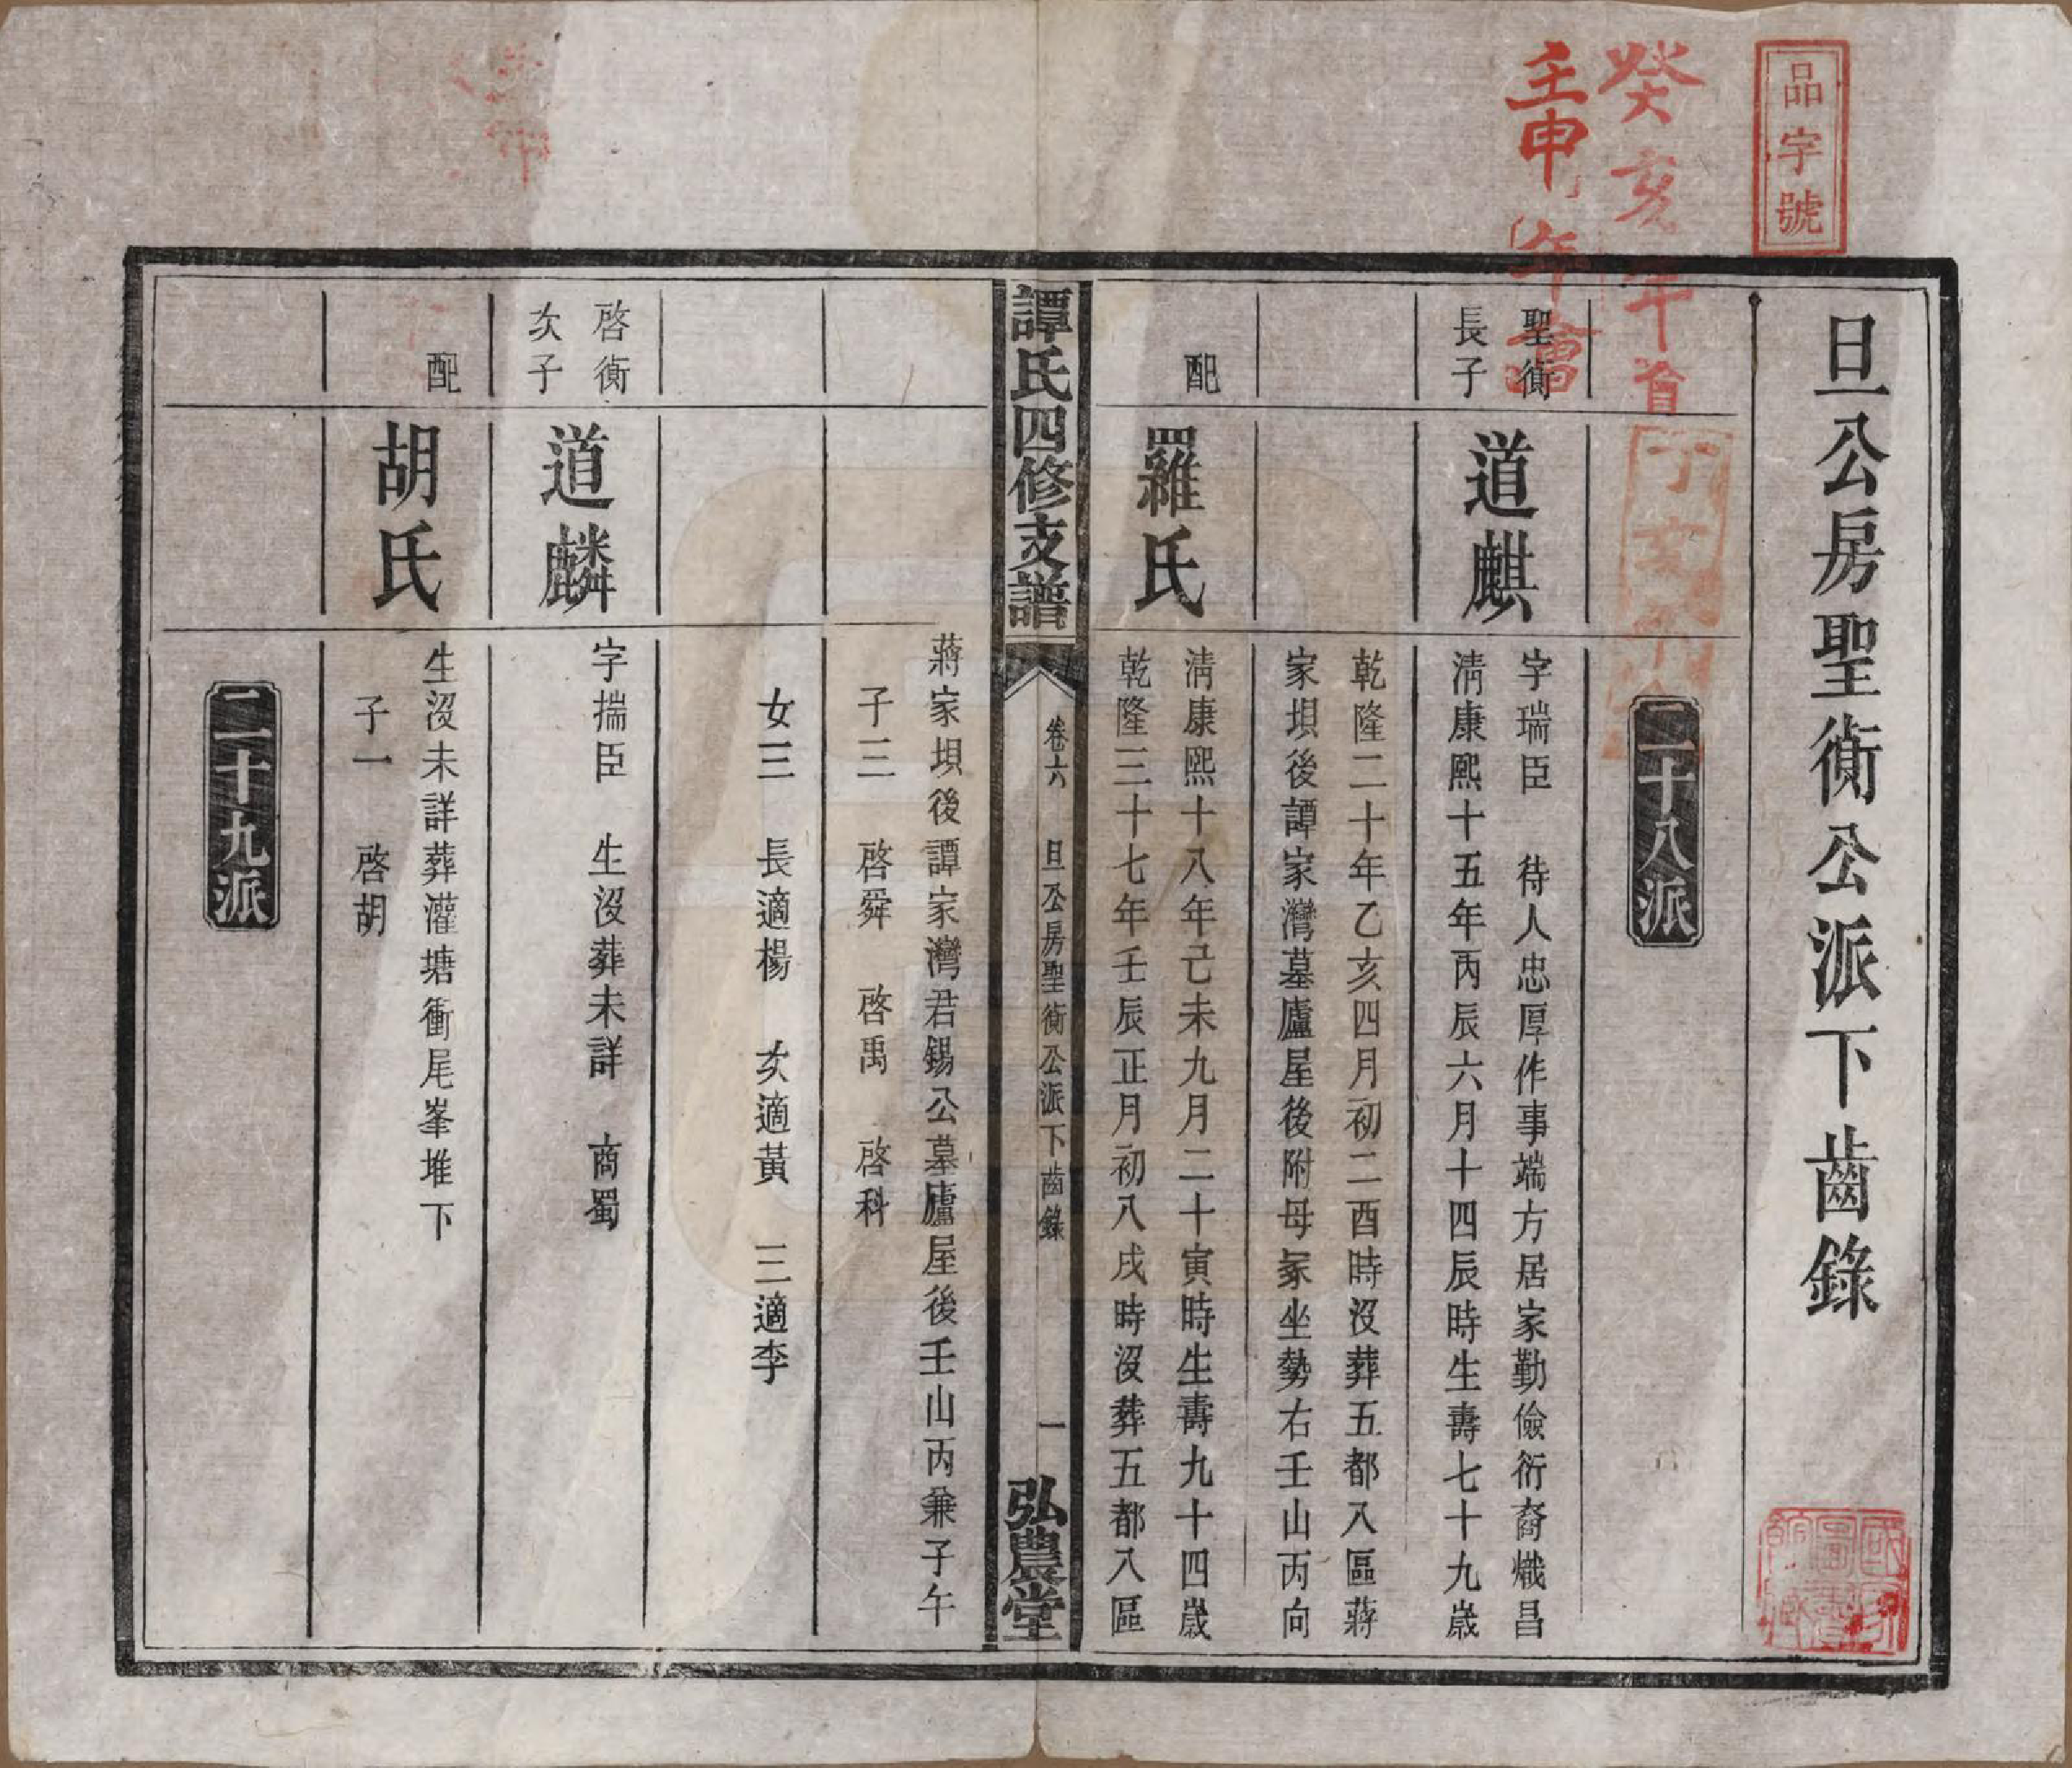 品字號
癸亥年首
壬申年會
丁亥
旦公房聖衡公派下齒錄
二十八派
聖衡
長子
道麒
字瑞臣　待人忠厚作事端方居家勤儉衍裔熾昌
清康熙十五年丙辰六月十四辰時生壽七十九歲
乾隆二十年乙亥四月初二酉時沒葬五都入區蔣
家垻後譚家灣墓廬屋後附母冢坐勢右壬山丙向
配
羅氏
清康熙十八年己未九月二十寅時生壽九十四歲
乾隆三十七年壬辰正月初八戌時沒葬五都入區
譚氏四修支譜
卷六　旦公房聖衡公派下齒錄　一
弘農堂
蔣家垻後譚家灣君錫公墓廬屋後壬山丙兼子午
子三　啓舜　啓禹　啓科
女三　長適楊　次適黃　三適李
啓衡
次子
道麟
字揣臣　生沒葬未詳　商蜀
配
胡氏
生沒未詳葬灌塘衝尾峯堆下
子一　啓胡
二十九派
國家圖書館藏